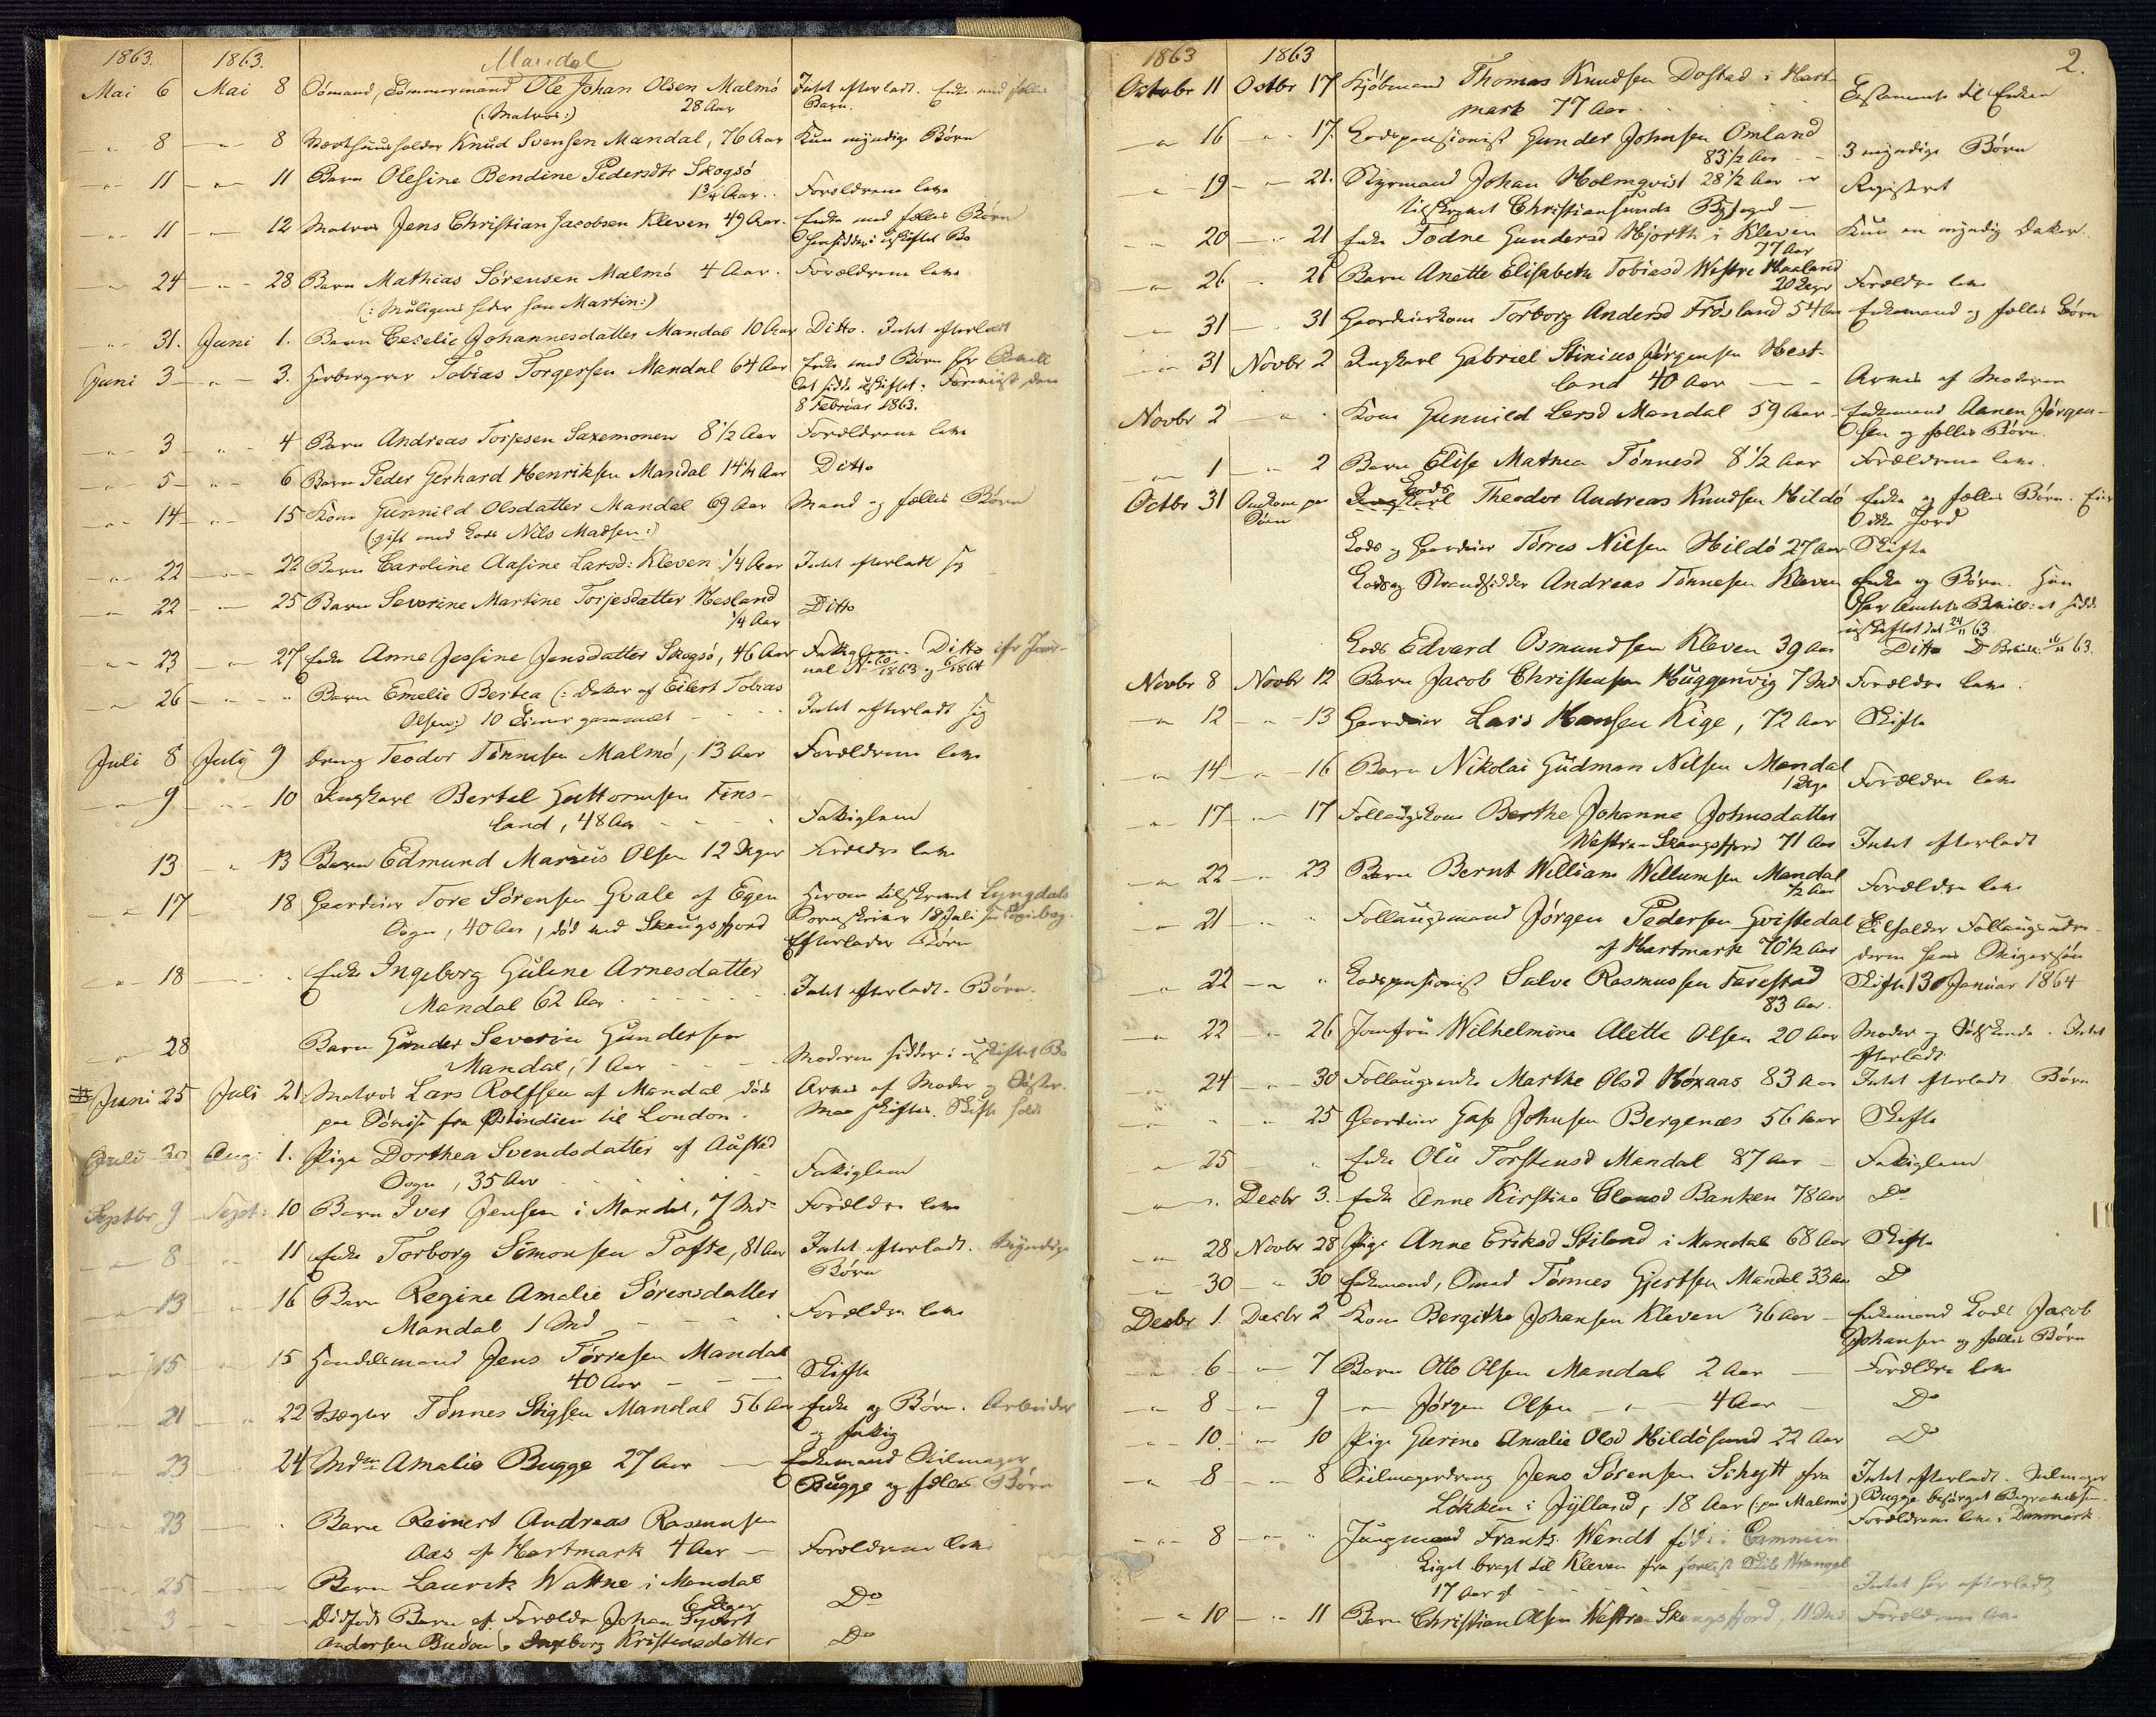 1863. 1863. Mandal
Mai 6 Mai 8 Sömand, Tömmermand Ole Johan Olsen Malmö Intet efterladt. Enke med fælles
(: Matros:) 28 Aar Børn.
" 8 " 8 Værthuusholder Knud Svensen Mandal, 76 Aar Kun myndige Børn
" 11 " 11 Barn Olesine Bendine Pedersdtr Skogsö
1¾ Aar. Forældrene leve
" 11 " 12 Matros Jens Christian Jacobsen Kleven 49 Aar. Enke med fælles Børn
Hensidder i uskiftet Bo
" 24 " 28 Barn Mathias Sörensen Malmö 4 Aar. Forældrene leve
(: Muligens heder han Martin:)
" 31. Juni 1. Barn Cecelie Johannesdatter Mandal 10 Aar Ditto. Intet efterladt
Juni 3 " 3. Herbergerer Tobias Torgersen Mandal 64 Aar Enke med Børn har Bevill
at sidde uskiftet.
8 Februar 1863.
" 3 " 4 Barn Andreas Torjesen Saxemonen 8½ Aar Forældrene leve
" 5 " 6 Barn Peder Gerhard Henriksen Mandal 14¼ Aar Ditto
" 14 " 15 Kone Gunnild Olsdatter Mandal 69 Aar Mand og fælles Børn
(: gift med Lods Nils Madsen:)
" 22 " 22 Barn Caroline Aasine Larsd: Kleven ¼ Aar Intet efterladt sig
" 22 " 25 Barn Severine Martine Torjesdatter Hesland
¼ Aar Ditto
" 23 " 27 Enke Anne Jessine Jensdatter Skogsö, 46 Aar Fattiglem. Ditto
1863 og 1864
" 26 " " Barn Emelie Bertea (: Datter af Eilert Tobias
Olsen:) 10 Timer gammelt Intet efterladt sig
Juli 8 July 9 Dreng Teodor Tönnesen Malmö, 13 Aar Forældrene leve
" 9 " 10 Ungkarl Bertel Guttormsen Fins-
land, 48 Aar Fattiglem
13 " 13 Barn Edmund Marius Olsen 12 Dager Forældre leve
" 17 18 Gaardmand Tore Sörensen Qvale af Egen
Sogn, 40 Aar, död ved Skougsfjord
Efterlader Børn
" 18 " Enke Ingeborg Gulene Arnesdatter
Mandal 62 Aar Intet efterladt. Børn.
" 28 Barn Gunder Severin Gundersen
Mandal, 1 Aar Moderen sidder i uskiftet Bo
Juni 25 Juli 21. Matros Lars Rolfsen af Mandal död Arves af Moder og Søster.
paa Søreise fra Ostindien til London. Maa skiftes. Skifte holdt
Juli 30 Aug: 1. Pige Dorthea Svendsdatter af Austad
Sogn, 35 Aar Fattiglem
Septbr 9 Sept: 10 Barn Iver Jensen i Mandal, 7 Md. Forældre leve
" 8 " 11 Enke Torborg Simonsen Tofte, 81 Aar Intet efterladt. Myndige
Børn
" 13 " 16 Barn Regine Amalie Sörensdatter
Mandal 1 Md Forældre leve
" 15 " 15 Handelsmand Jens Törresen Mandal
40 Aar Skifte
" 21 " 22 Vægter Tönnes Stigsen Mandal 56 Aar Enke og Børn. Arbeider
og fattig
" 23 24 Mdm Amalie Bugge 27 Aar Enkemand Seilmager
Bugge og fælles Børn
" 23 " Barn Reinert Andreas Rasmusen
Aas af Hartmark 4 Aar Forældrene leve
" 25 Barn Laurits Wattne i Mandal
6 Dager Do
" 3 Dødfødt Barn af Forældre Johan Syvert
Andersen og Ingeborg Kristensdatter Do
1863 1863 2.
Octobr 11 Octbr 17 Kjöbmand Thomas Knudsen Dostad i Hart-
mark 77 Aar Testamente til Enken
" 16 " 17. Lodspensionist Gunder Johnsen Omland
83½ Aar 3 myndige Børn
" 19 " 21. Styrmand Johan Holmqvist 28½ Aar Registret
tilskrevet Christiansunds Byfoged
" 20 " 21 Enke Todne Gundersd Hjorth i Kleven Kun en myndig Datter.
77 Aar
" 26 " 26 Barn Anette Elisabeth Tobiasd Westre Haaland
20 Dager Forældre leve
" 31 " 31 Gaardmandskone Torborg Andersd Frösland 54 Aar Enkemand og fælles Børn
" 31 Novbr 2 Ungkarl Gabriel Stinius Jörgensen Hest-
land 40 Aar Arves af Moderen
Novbr 2 " Kone Gunnild Larsd Mandal 59 Aar Enkemand Aanen Jörgen-
sen og fælles Børn.
" 1 " 2 Barn Elise Mathea Tönnesd 8½ Aar Forældrene leve.
Octbr 31 Omkom paa Lods Theodor Andreas Knudsen Hildö Enke og fælles Børn. Eier
Søen ikke Jord
Lods og Gaardmand Törres Nilsen Hildö 27 Aar Skifte
Lods og Strandsidder Andreas Tönnesen Kleven Enke og Børn. Hun
har Amtets Bevill: at sidde
uskiftet dat 24/11 63.
Lods Edvard Osmundsen Kleven 39 Aar Ditto D Bevill: 16/11 63.
Novbr 8 Novbr 12 Barn Jacob Christensen Huggenvig 7 Md Forældre leve.
" 12 " 13 Gaardmand Lars Hansen Rige, 72 Aar Skifte
" 14 " 16 Barn Nikolai Gudman Nilsen Mandal
1 Dage Forældre leve
" 17 " 17 Follaugskone Berthe Johanne Johnsdatter
Westre-Skougsfjord 71 Aar Intet efterladt
" 22 " 23 Barn Bernt William Willumsen Mandal
½ Aar Forældre leve
" 21 " Follaugsmand Jörgen Pedersen Qvistedal
af Hartmark 70½ Aar
" 22 " " Lodspensionist Salve Rasmussen Farestad Skifte 13 Januar 1864
83 Aar.
" 22 " 26 Jomfru Wilhelmine Alette Olsen 20 Aar Moder og Sødskende. Intet
efterladt
" 24 " 30 Follaugsenke Marthe Olsd Höxaas 83 Aar Intet efterladt Børn
" " " 25 Gaardmand Gase Johnsen Bergenæs 56 Aar Skifte
" 25 " Enke Olu Torstensd Mandal 87 Aar Fattiglem
" " Decbr 3. Enke Anne Kirstine Clausd Banken 78 Aar Do
" 28 Novbr 28 Pige Anne Eriksd Stiland i Mandal 68 Aar Skifte
" 30 " 30 Enkemand, Smed Tönnes Gjertsen Mandal 33 Aar Do
Decbr 1 Decbr 2 Kone Bergithe Johansen Kleven 36 Aar Enkemand Lods Jacob
Johansen og fælles Børn
" 6 " 7 Barn Otto Olsen Mandal 2 Aar Forældre leve
" 8 " 9 " Jörgen Olsen " 4 Aar Do
" 10 " 10 Pige Gurine Amalie Olsd Hildösund 22 Aar Do
" 8 " 8 Seilmagerdreng Jens Sörensen Schytt fra Intet efterladt. Seilmager
Lökken i Jylland, 18 Aar (: paa Malmö) Bugge besörget Begravelsen.
Forældrene leve i Danmark.
" 8 " " Jungmand Frants Wendt född i Cammin
Liget bragt til Kleven fra Skib Wrangel
17 Aar gl Intet her efterladt
" 10 " 11 Barn Christian Olsen Westre-Skougsfjord, 11 Md Forældrene leve